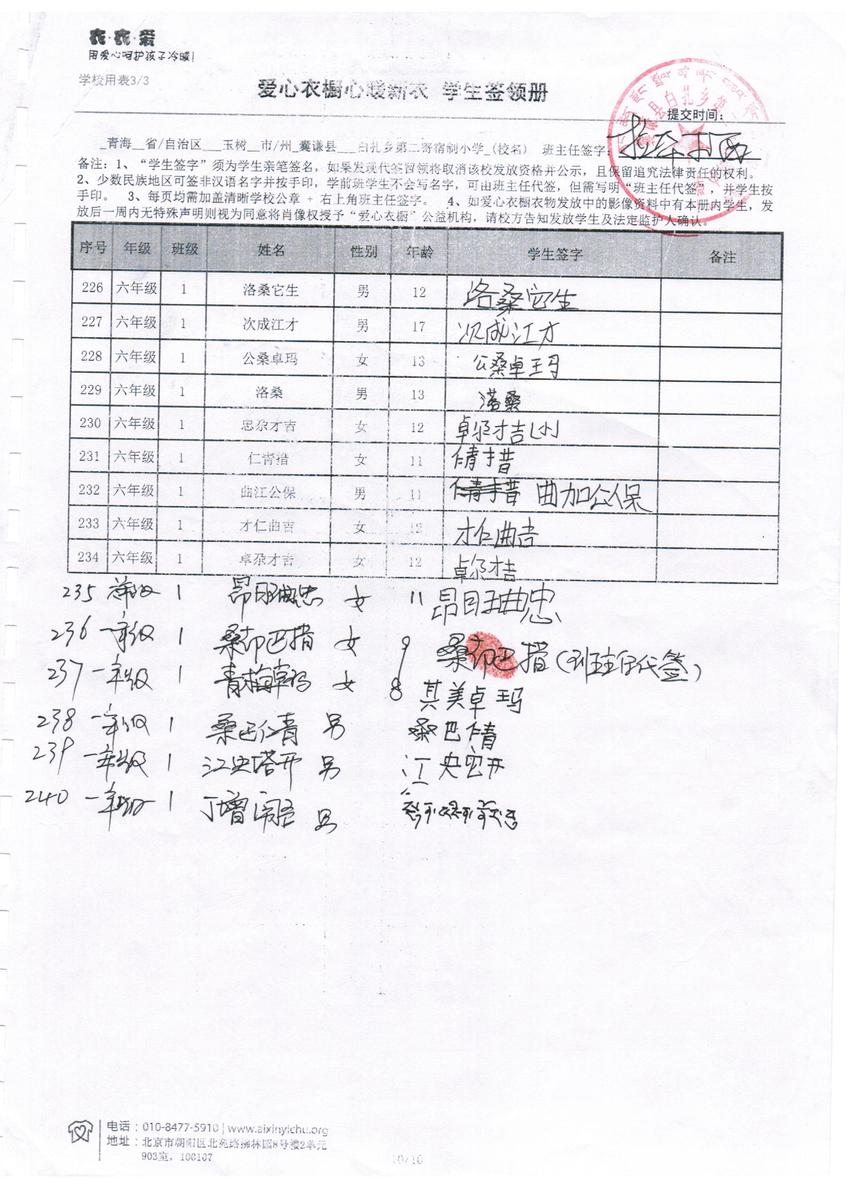 衣·衣·爱
用爱心呵护孩子冷暖!
学校用表3/3
爱心衣橱心暖新衣 学生签领册
提交时间:
_青海__省/自治区___玉树__市/州_囊谦县___白扎乡第二寄宿制小学_(校名) 班主任签字:
备注: 1、“学生签字”须为学生亲笔签名，如果发现代签冒领将取消该校发放资格并公示，且保留追究法律责任的权利。
2、少数民族地区可签非汉语名字并按手印，学前班学生不会写名字，可由班主任代签，但需写明“班主任代签”，并学生按
手印。 3、每页均需加盖清晰学校公章 + 右上角班主任签字。 4、如爱心衣橱衣物发放中的影像资料中有本册内学生，发
放后一周内无特殊声明则视为同意将肖像权授予“爱心衣橱”公益机构，请校方告知发放学生及法定监护人确认。
序号 年级 班级 姓名 性别 年龄 学生签字 备注
226 六年级 1 洛桑它生 男 12 洛桑它生
227 六年级 1 次成江才 男 17 次成江才
228 六年级 1 公桑卓玛 女 13 公桑卓玛
229 六年级 1 洛桑 男 13 洛桑
230 六年级 1 忠尕才吉 女 12 卓尕才吉(小)
231 六年级 1 仁青措 女 11
232 六年级 1 曲江公保 男 11 曲加公保
233 六年级 1 才仁曲吉 女 12 才仁曲吉
234 六年级 1 卓尕才吉 女 12 卓尕才吉
235 1 昂旺曲忠 女 11 昂旺曲忠
236 一年级 1 桑邛巴措 女 9 桑邛巴措(班主任代签)
237 一年级 1 青梅卓玛 女 8 其美卓玛
238 一年级 1 桑巴仁青 男 桑巴
239 一年级 1 江央塔开 男 江央
240 一年级 1 丁增 男
电话: 010-8477-5910 | www.aixinyichu.org
地址: 北京市朝阳区北苑路拂林园8号楼2单元
903室, 100107
10/10